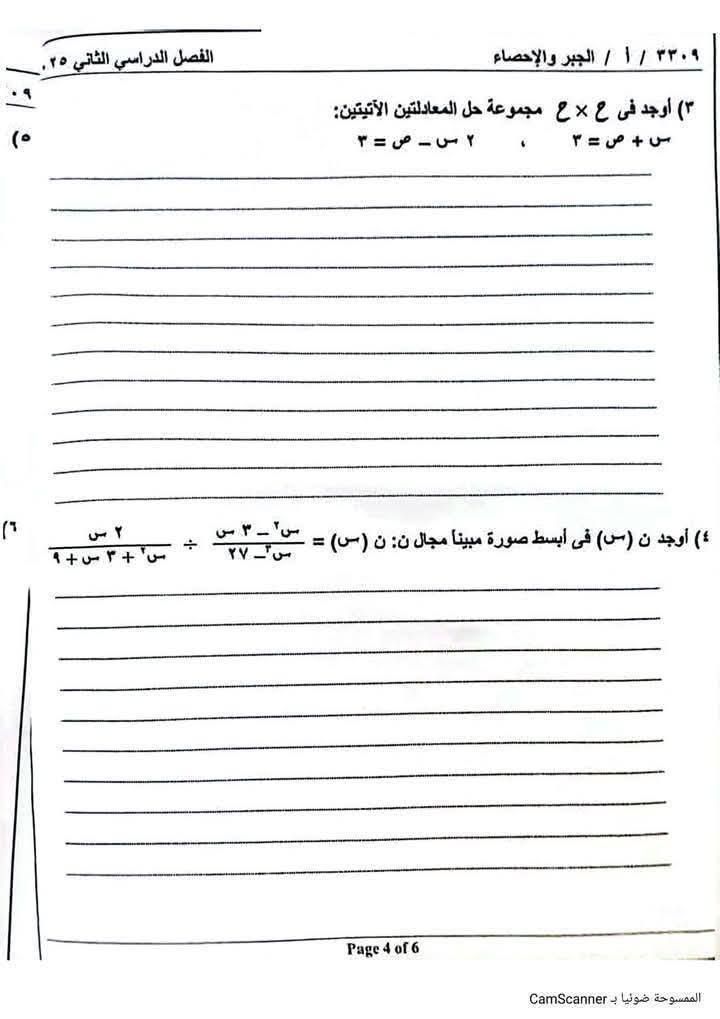 ٣٣٠٩ / أ / الجبر والإحصاء الفصل الدراسي الثاني ٢٥.
٠٩
٣) أوجد فى ح × ح مجموعة حل المعادلتين الآتيتين:
س + ص = ٣ ، ٢ س – ص = ٣
٥)
٤) أوجد ن (س) فى أبسط صورة مبيناً مجال ن: ن (س) = (س² – ٣ س)/(س³ – ٢٧) ÷ (٢ س)/(س² + ٣ س + ٩)
٦)
Page 4 of 6
الممسوحة ضوئيا بـ CamScanner